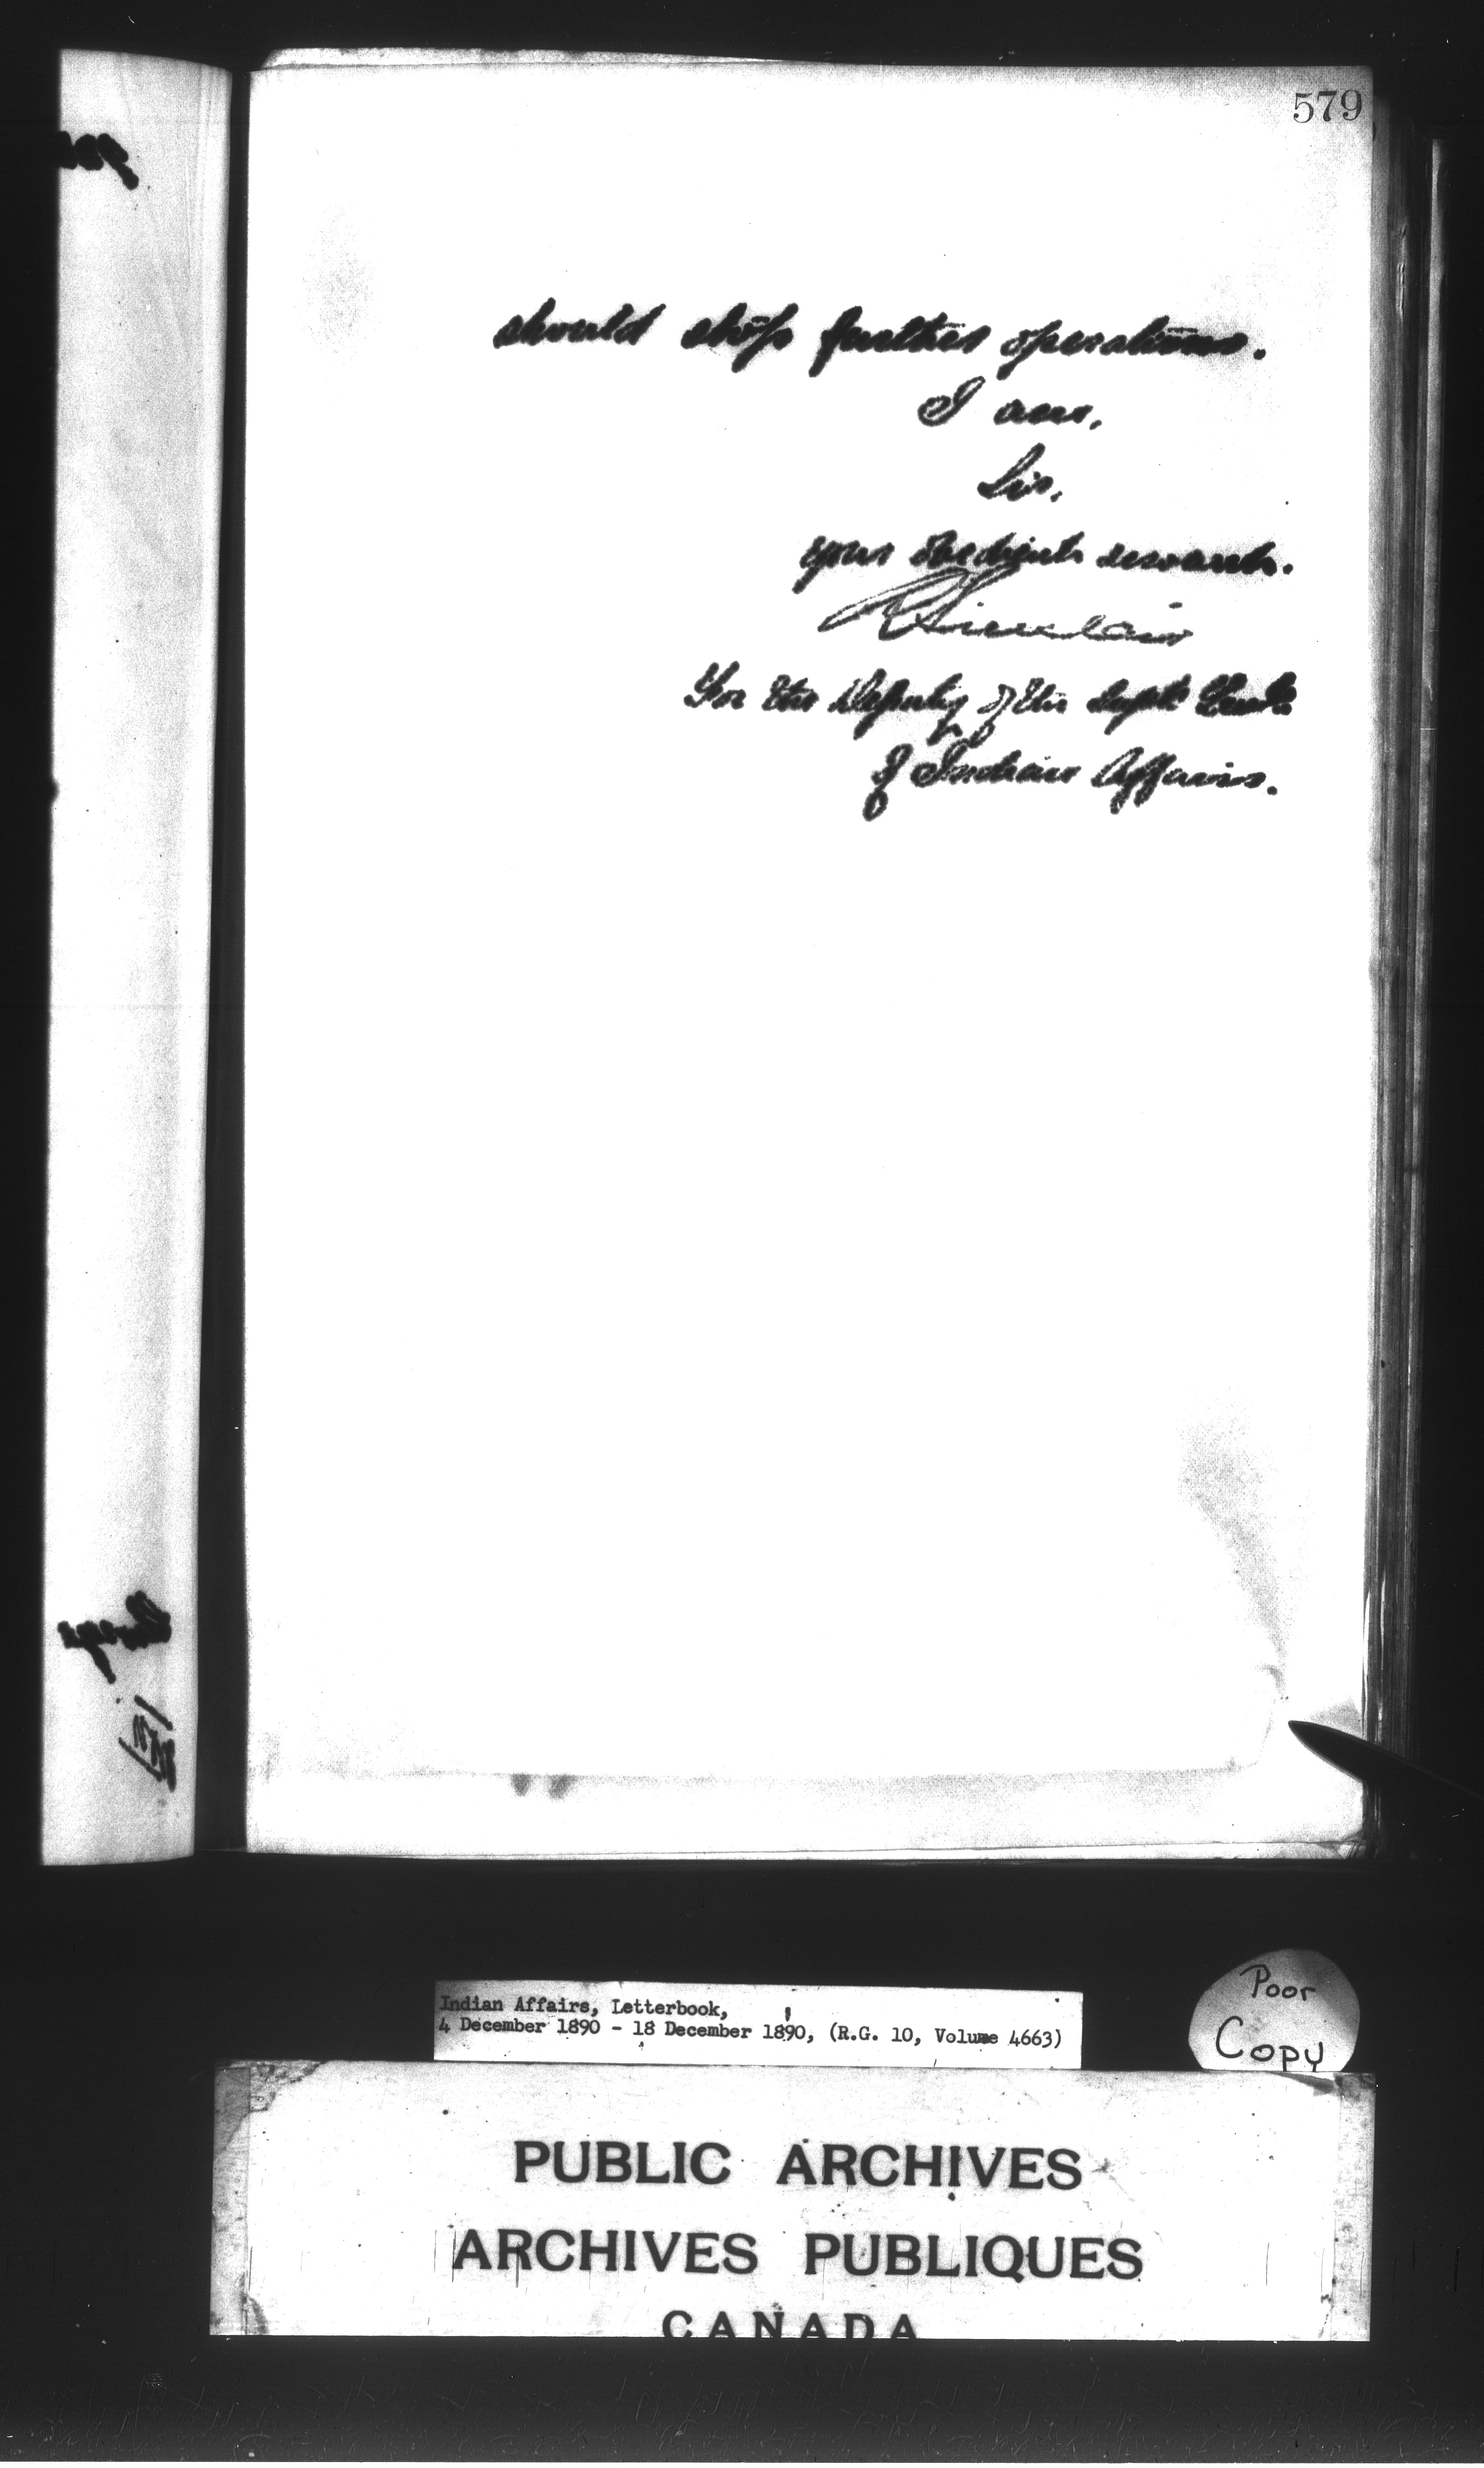 579
should stop further operations.
I am,
Sir,
your obedient servant.
R Sinclair
For the Deputy of the Supt Genl.
of Indian Affairs.
Indian Affairs, Letterbook,
4 December 1890 - 18 December 1890, (R.G. 10, Volume 4663)
Poor
Copy
PUBLIC ARCHIVES
ARCHIVES PUBLIQUES
CANADA